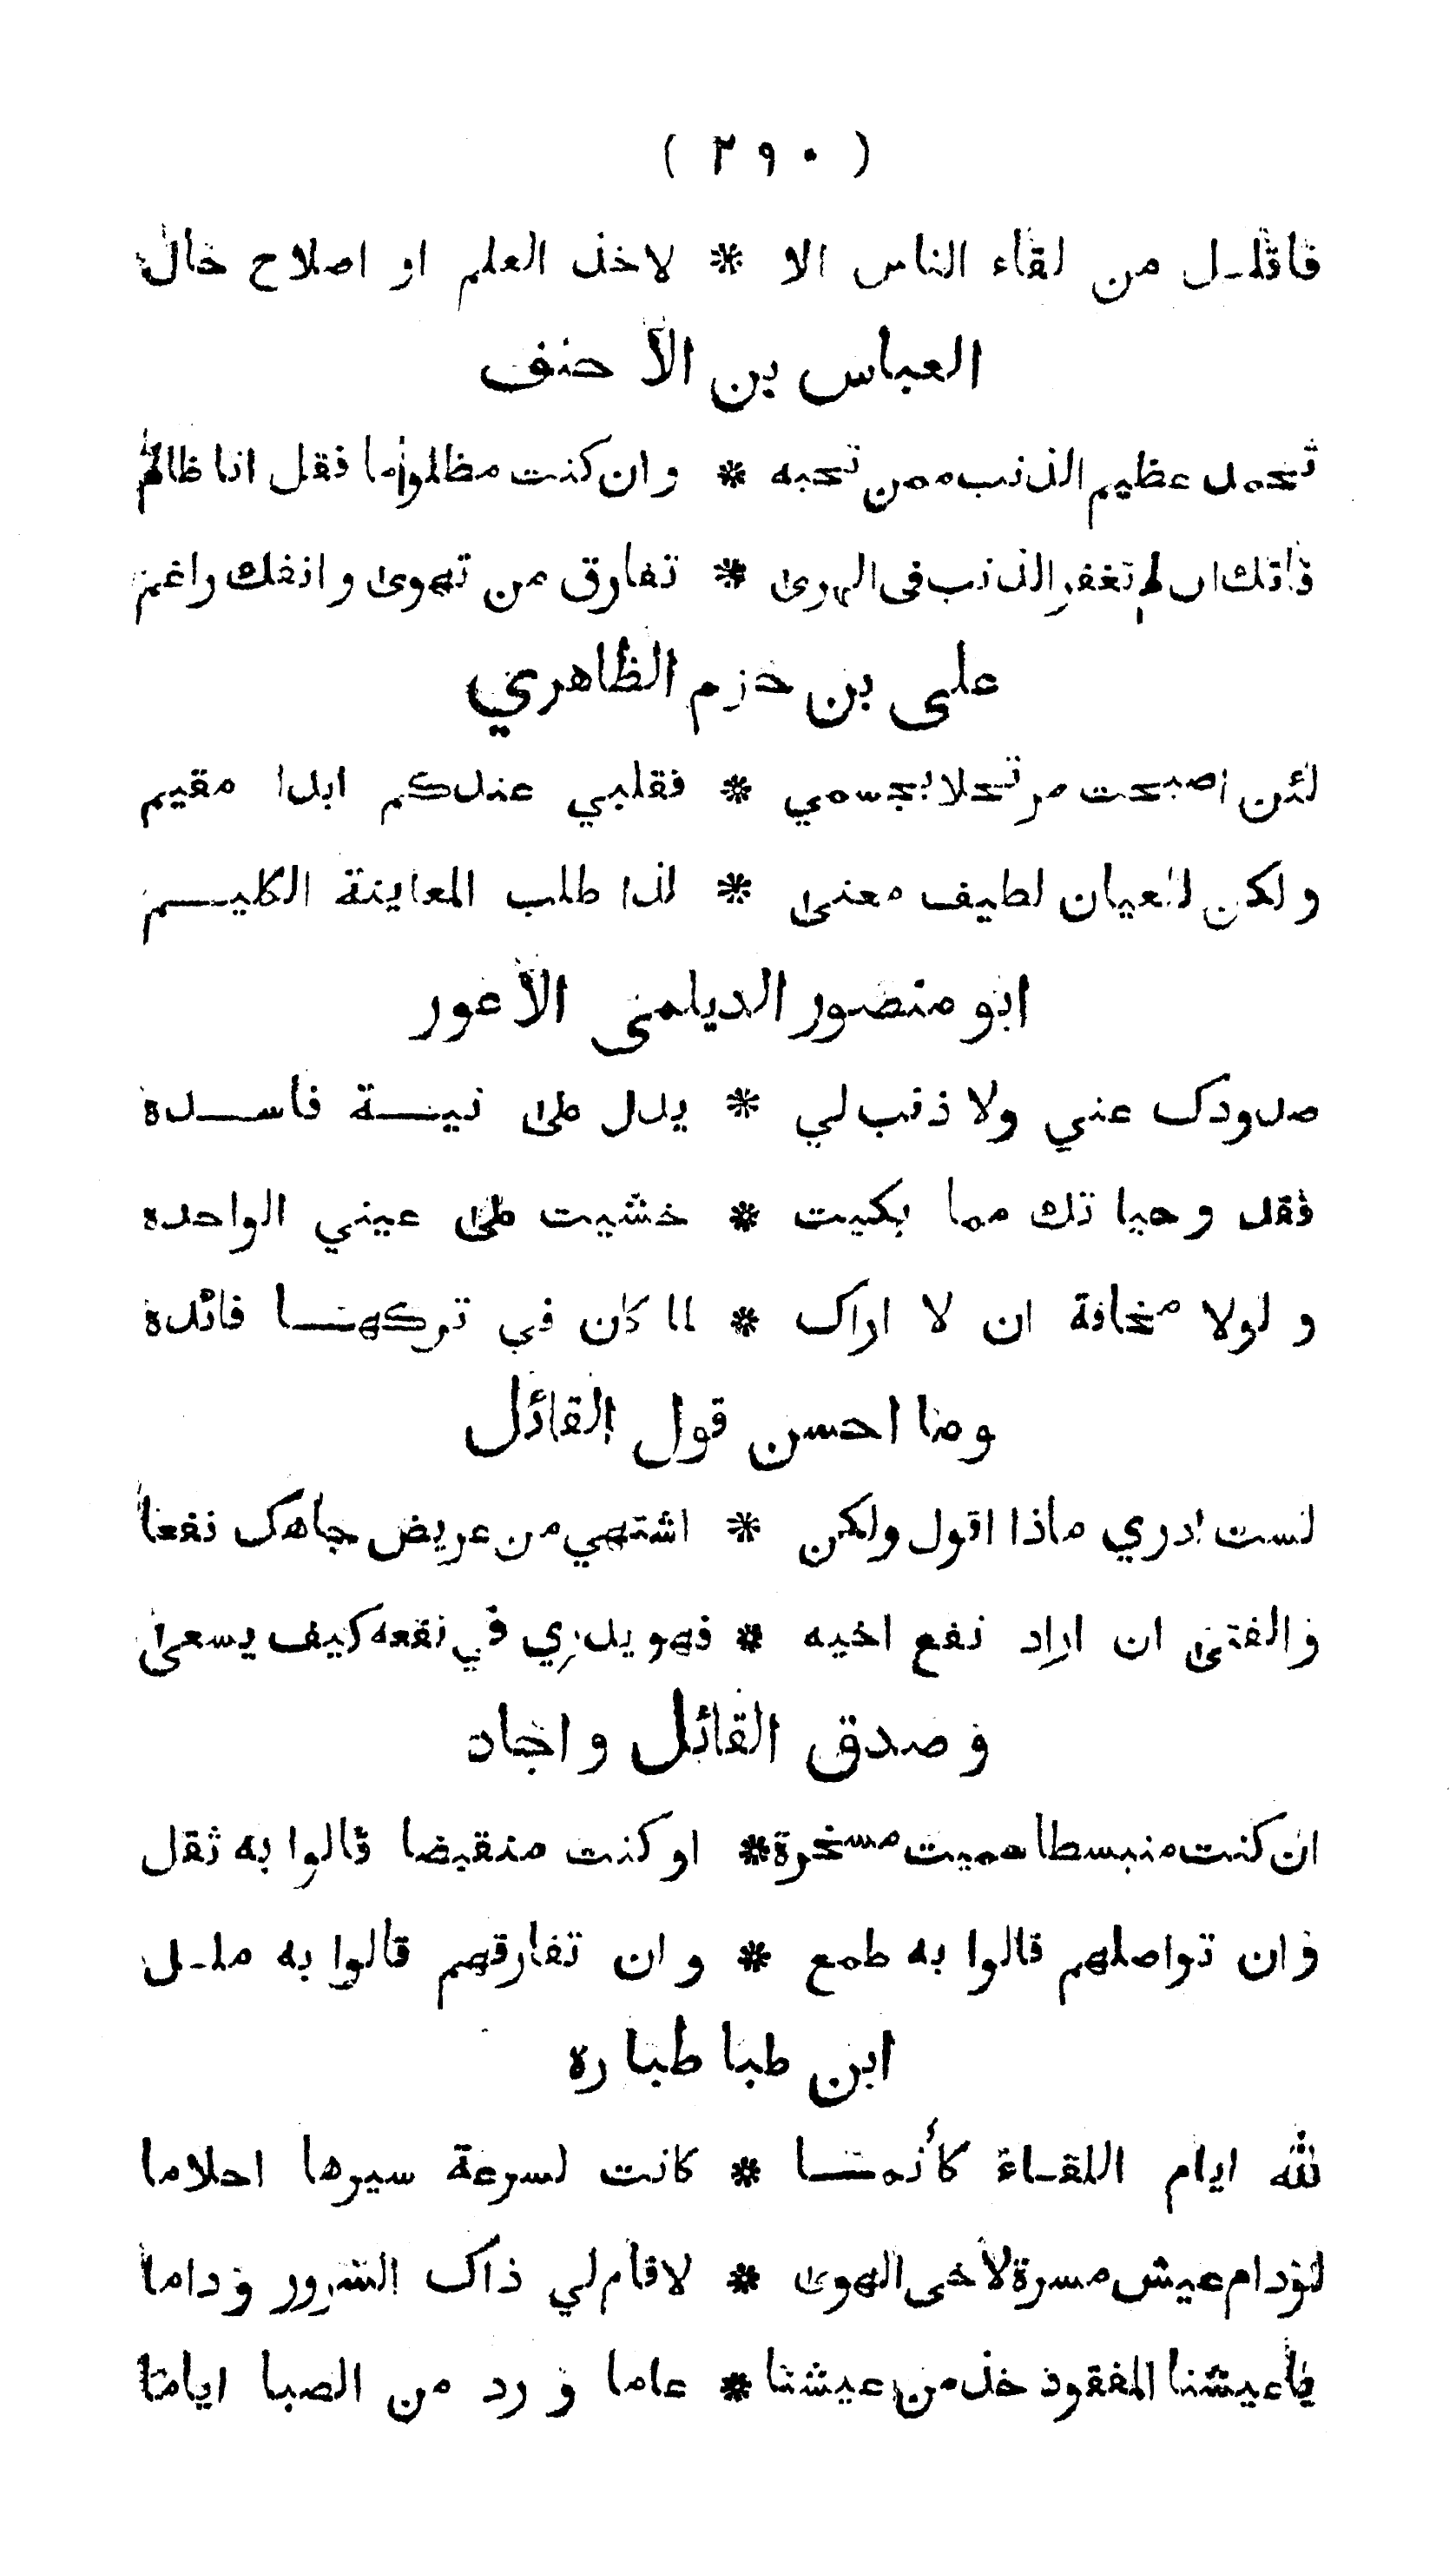 ( ٢٩٠ )
فاقلـل من لقاء الناس الا * لاخذ العلم او اصلاح حال
العباس بن الأحنف
تحمل عظيم الذنب ممن تحبه * وان كنت مظلوما فقل انا ظالم
فانك ان لم تغفر الذنب فى الهوى * تفارق من تهوى وانفك راغم
على بن حزم الظاهري
لئن اصبحت مرتحلا بجسمي * فقلبي عندكم ابدا مقيم
ولكن للعيان لطيف معنى * لذا طلب المعاينة الكليـــم
ابو منصور الديلمى الأعور
صدودك عني ولا ذنب لي * يدل على نيـــة فاســـده
فقد وحياتك مما بكيت * خشيت على عيني الواحده
ولولا مخافة ان لا اراك * لما كان في تركهـــا فائده
وما احسن قول القائل
لست ادري ماذا اقول ولكن * اشتهي من عريض جاهك نفعا
والفتى ان اراد نفع اخيه * فهو يدري في نفعه كيف يسعى
وصدق القائل واجاد
ان كنت منبسطا سميت مسخرة * او كنت منقبضا قالوا به ثقل
وان تواصلهم قالوا به طمع * وان تفارقهم قالوا به ملـل
ابن طبا طباره
لله ايام اللقـاء كأنمـــا * كانت لسرعة سيرها احلاما
لو دام عيش مسرة لأخى الهوى * لاقام لي ذاك السرور وداما
يا عيشنا المفقود خذ من عيشنا * عاما ورد من الصبا اياما